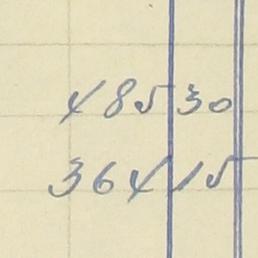 485 30
364 15